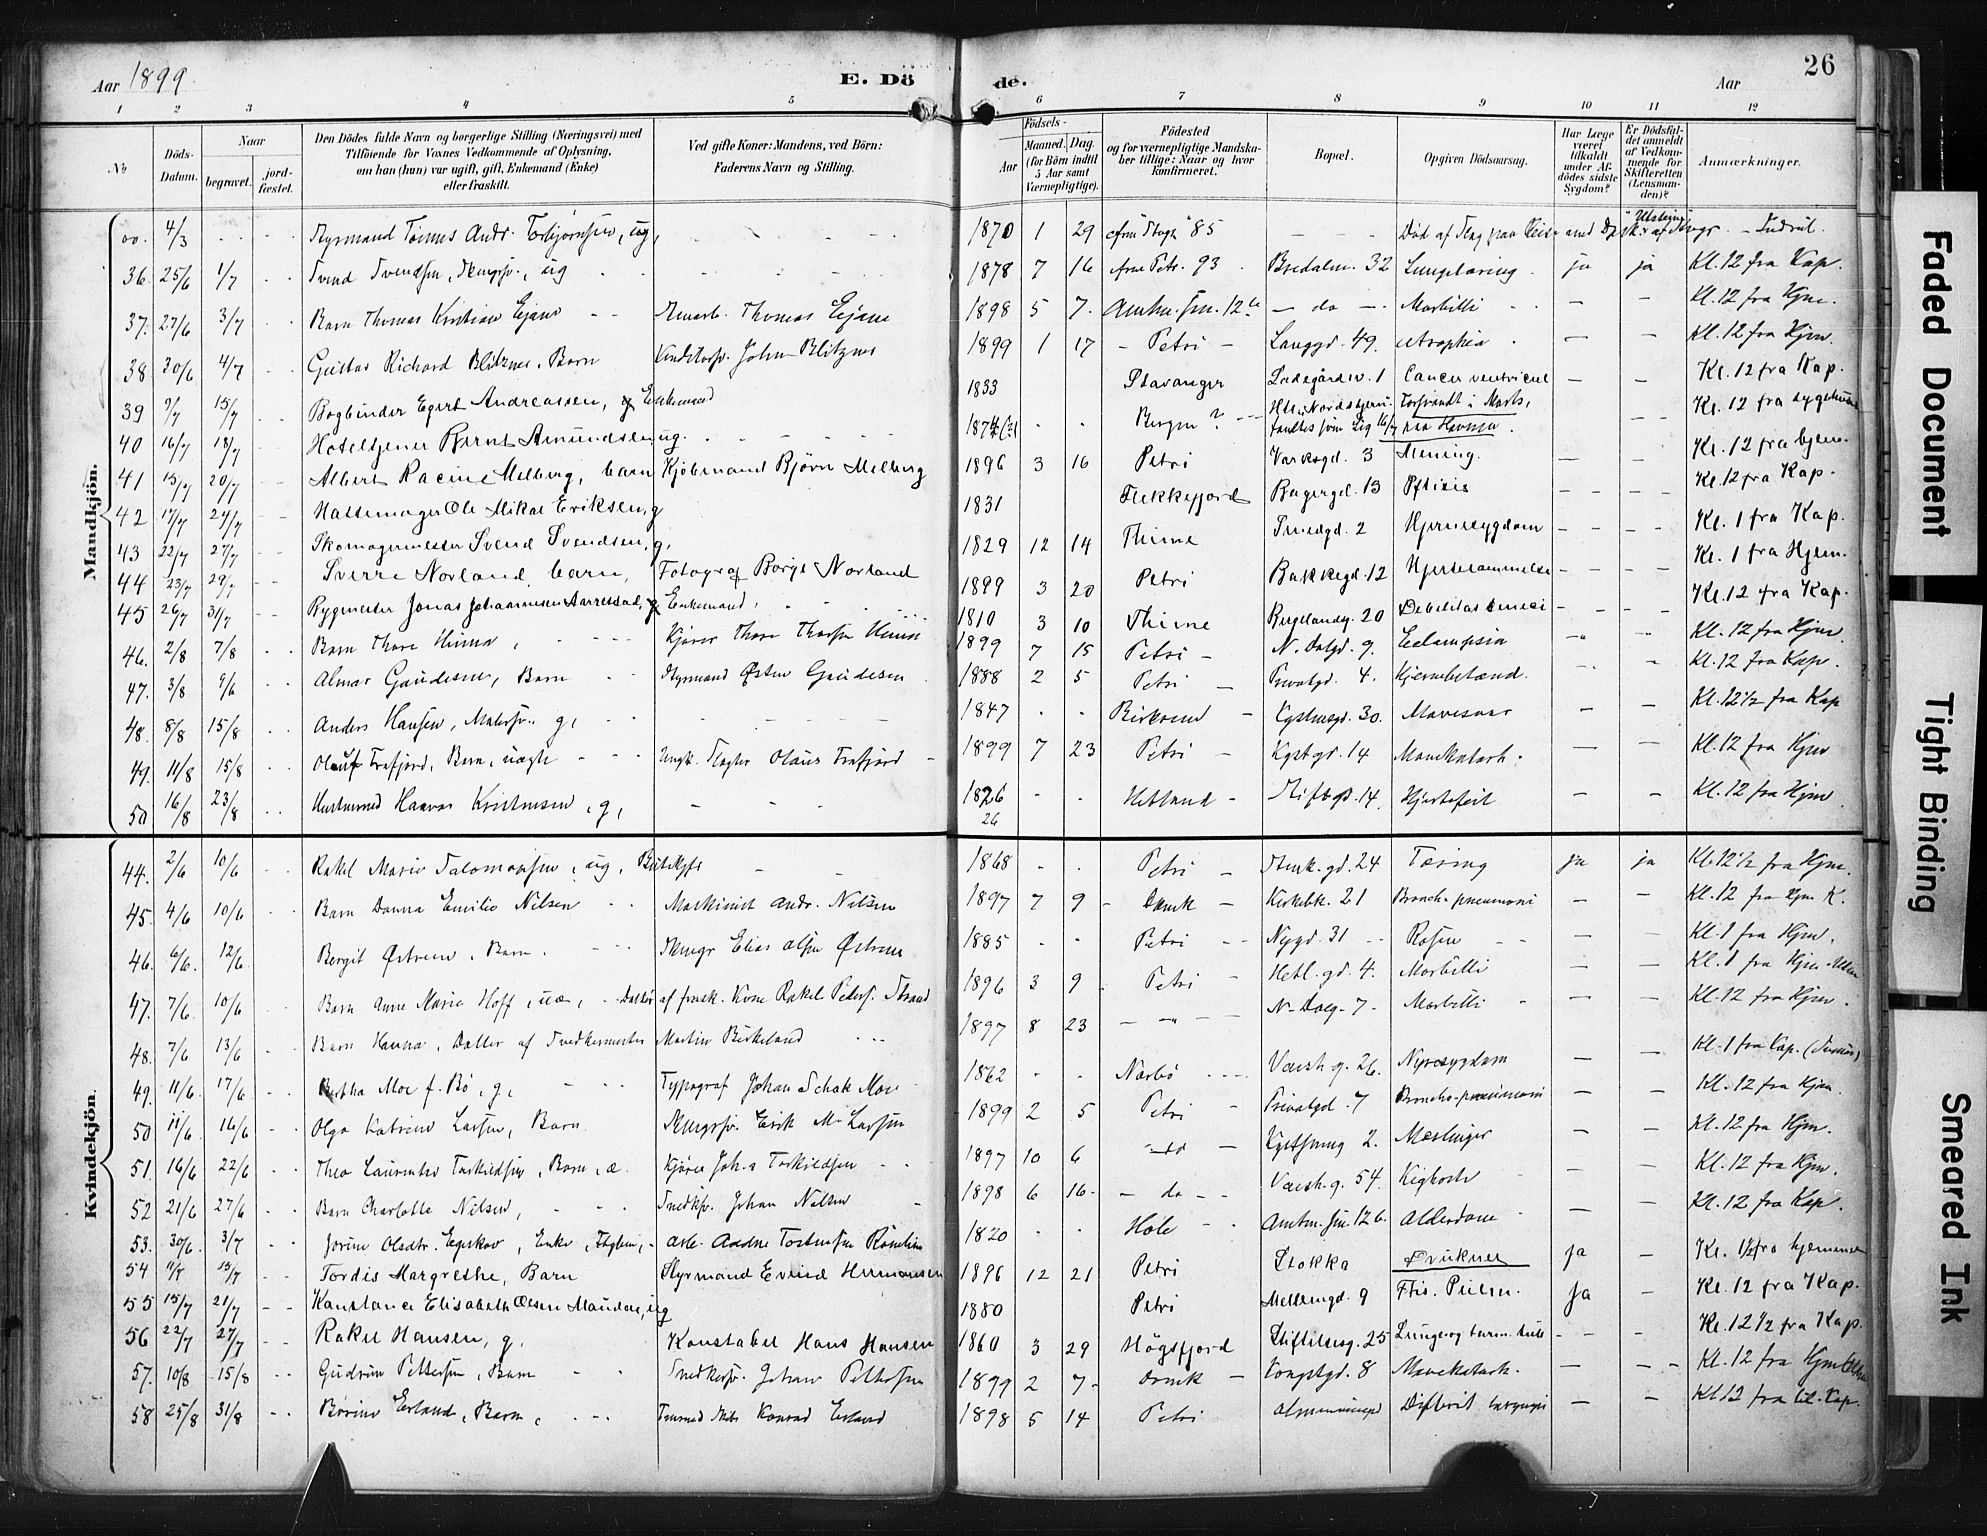 Aar 1899
E. Dö
de.
Aar
26
1 2 3 4 5 6 7 8 9 10 11 12
No
Döds-Datum.
Naar
begravet.
jord-fæstet.
Den Dödes fulde Navn og borgerlige Stilling (Næringsvei) med
Tilföiende for Voxnes Vedkommende af Oplysning,
om han (hun) var ugift, gift, Enkemand (Enke)
eller fraskilt.
Ved gifte Koner: Mandens, ved Börn:
Faderens Navn og Stilling.
Födsels-
Aar
Maaned. Dag.
(for Börn indtil
5 Aar samt
Værnepligtige).
Födested
og for værnepligtige Mandska-
ber tillige: Naar og hvor
konfirmeret.
Bopæl.
Opgiven Dödsaarsag.
Har Læge
været
tilkaldt
under Af-
dödes sidste
Sygdom?
Er Dödsfal-
det anmeldt
af Vedkom-
mende for
Skifteretten
(Lensman-
den)?
Anmærkninger.
Mandkjön.
4/3 Styrmand Tönnes Andr. Torbjørnsen, ug, 1870 1 29 85 Død af Slag paa
36. 25/6 1/7 Svend Svendsen, ug 1878 7 16 93 Bredalm. 32 Lungetæring ja ja Kl. 12 fra Kap.
37. 27/6 3/7 Barn Thomas Kristian Ejane Thomas Ejane 1898 5 7. do Morbilli Kl. 12 fra Hjm.
38 30/6 4/7 Gustav Richard Blitznes, Barn John Blitznes 1899 1 17 Petri Langgd. 49. Atrophia Kl. 12 fra Hjm.
39 9/7 15/7 Bogbinder Egert Andreassen, Enkemand 1833 Stavanger Ladegårdsv. 1 Cancer ventricul Kl. 12 fra Kap.
40 16/7 18/7 Hoteltjener Bernt Amundsen ug. 1874 Bergen? Forsvandt i Marts, fandtes som Lig 16/7 paa Havnen. Kl. 12 fra sygehuset
41 15/7 20/7 Albert Racine Melberg, barn Kjöbmand Bjørn Melberg 1896 3 16 Petri Varksgd. 3 Mening. Kl. 12 fra hjem.
42 17/7 24/7 Hattemager Ole Mikal Eriksen, g 1831 Flekkefjord Bagergd. 13 Pftisis Kl. 12 fra Kap.
43 22/7 27/7 Skomagermester Svend Svendsen, g. 1829 12 14 Thime 2 Hjernesygdom Kl. 1 fra Kap.
44 23/7 29/7 Sverre Norland, barn, Fotograf Borge Norland 1899 3 20 Petri Bakkegd. 12 Hjertelammelse Kl. 1 fra Hjem.
45 26/7 31/7 Bygmester Jonas Johannesen Aarrestad, Enkemand, 1810 3 10 Thime Bergelandsg. 20 Debilitas seneci Kl. 12 fra Kap.
46. 2/8 7/8 Barn Thore Hinna, Kjører Thore Thorsen Hinna 1899 7 15 Petri N. Dalgd. 9. Eclampsia Kl. 12 fra Hjm.
47. 3/8 9/6 Almar Gaudesen, Barn Styrmand Østen Gaudesen 1888 2 5 Petri Privatgd. 4. Hjernebetænd. Kl. 12 fra Kap.
48. 8/8 15/8 Anders Hansen, Malersv. g, 1847 Birkrem 30. Mavesaar Kl. 12½ fra Kap
49. 11/8 15/8 Oluf Frafjord, Barn, uægte Ungk. Slagter Olaus Frafjord 1899 7 23 Petri Kystgd. 14 Mavekatarh. Kl. 12 fra Hjm
50 16/8 23/8 Husmand Haavar Kristensen, g, 1826 26 Hetland 14. Hjertefeil Kl. 12 fra Hjm
Kvindekjön.
44. 2/6 10/6 Rakel Marie Salomonsen, ug, 1868 Petri gd. 24 Tæring ja ja Kl. 12½ fra Hjm.
45. 4/6 10/6 Barn Danna Emilie Nilsen Maskinist Andr. Nilsen 1897 7 9 Domk Kirkebk. 21 Broncho-pneumoni Kl. 12 fra Hjm K.
46. 6/6. 12/6. Bergit Østrem, Barn. Elias Olsen Østrem 1885 Petri Nygd. 31 Rosen Kl. 1 fra Hjm.
47. 7/6. 10/6 Barn Anne Marie Hoff, uæ, Datter af frask. Kone Rakel Peders. Strand 1896 3 9 Petri Hetl. gd. 4. Morbilli Kl. 1 fra Hjm
48. 7/6 13/6 Barn Hanna, Datter af Snedkermester Martin Birkeland 1897 8 23 N. Dalg. 7 Morbilli Kl. 12 fra Hjm.
49. 11/6. 17/6 Bertha Moe f. Bø, g, Typograf Johan Schak Moe 1862 Nærbø Varsh. g. 26. Nyresygdom Kl. 1 fra Kap.
50 11/6 16/6 Olga Katrine Larsen, Barn Erik M. Larsen 1899 2 5 Petri Privatgd. 7 Broncho-pneumoni Kl. 12 fra Hjm.
51. 16/6 22/6 Thea Laurentse Torkildsen, Barn, æ. Kjører Joh.s Torkildsen 1897 10 6 do 2. Mæslinger Kl. 12 fra Hjm.
52 21/6 27/6 Barn Charlotte Nilsen, Snedksv. Johan Nilsen 1898 6 16 do Varsh. g. 54. Kighoste Kl. 12 fra Hjm.
53. 30/6. 3/7 Jorine Olsdtr. Egeskov, Enke, 1820 Hole 126. Alderdom Kl. 12 fra Kap.
54 11/7 15/7 Tordis Margrethe, Barn Styrmand Evind Hermansen 1896 12 21 Petri Stokka Druknet ja Kl. 1½ fra hjemmet
55 15/7 21/7 Konstance Elisabeth Olsen Maudal, ug 1880 Petri Mellemgd. 9 Ftis. Pulm. ja Kl. 12 fra Kap.
56 22/7 27/7 Rakel Hansen, g. Konstabel Hans Hansen 1860 3 29 Högsfjord Stiftelsesg. 25 Lunge og tarm Kl. 12½ fra Kap.
57. 10/8 15/8 Gudrun Pettersen, Barn Snedkersv. Johan Pettersen 1899 2 7 Domk Kongsgd. 8 Mavekatarh. Kl. 12 fra Hjm
58 25/8 31/8 Børine Erland, Barn, Konrad Erland 1898 5 14 Petri Difterit Kl 12 fra Kap.
Faded Document
Tight Binding
Smeared Ink